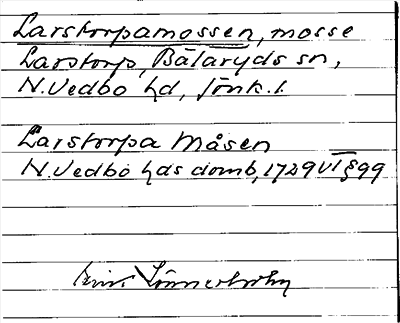 Larstorpamossen, mosse
Larstorp, Bälaryds sn,
N. Vedbo hd, Jönk. l.
Larstorpa Måsen
N. Vedbo hds domb, 1729 VI § 99